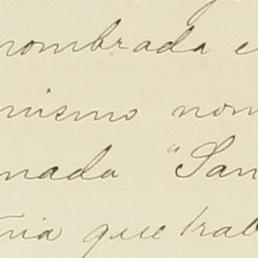 nombrada e
mismo nom
nada "San
ria que trab